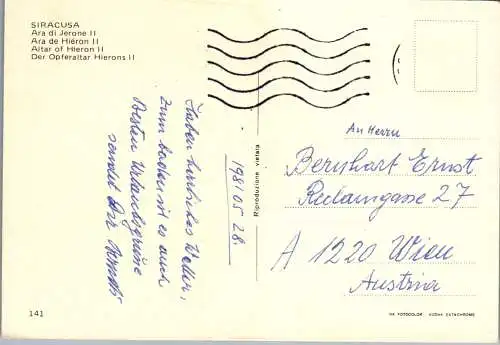 SIRACUSA
Ara di Jerone II
Ara de Hiéron II
Altar of Hieron II
Der Opferaltar Hierons II
Haben herrliches Wetter,
zum baden ist es auch
Besten Urlaubsgrüße
sendet Dir
1981 05 28.
Riproduzione vietata
An Herrn
Bernhart Ernst
Reclamgasse 27
A 1220 Wien
Austria
141
FOTOCOLOR KODAK EKTACHROME